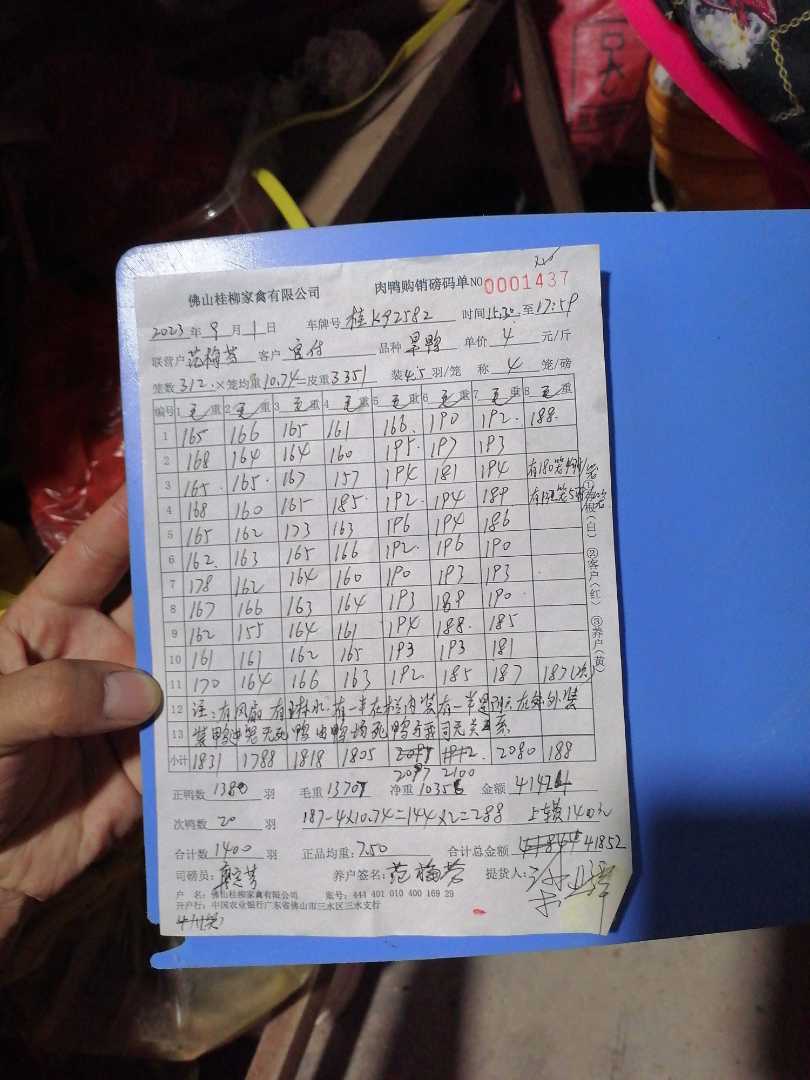 佛山桂柳家禽有限公司 肉鸭购销磅码单 NO 0001437
2023年9月1日 车牌号 桂K92582 时间 15:30 至 17:59
联营户 范梅芬 客户 官付 品种 单价 4 元/斤
笼数 312 ×笼均重 10.74 =皮重 3351 装 4.5 羽/笼 称 4 笼/磅
编号 1 毛重 2 毛重 3 毛重 4 毛重 5 重 6 重 7 重 8 重
1 165 166 165 161 166 190 192 188
2 168 164 164 160 195 197 193
3 165 165 167 157 194 181 194
4 168 160 165 185 192 194 189
5 165 162 173 163 196 194 186
6 162 163 165 166 192 196 190
7 178 162 164 160 190 193 193
8 167 166 163 164 193 189 190
9 162 155 164 161 194 188 185
10 161 161 162 165 193 193 181
11 170 164 166 163 192 185 187 187(次)
12 注:有风扇 有淋水 有一半在栏内装有一半是 在外装
13 装鸭 死鸭 死鸭与我司无关系
小计 1831 1788 1818 1805 2080 188
2097 2100
正鸭数 1380 羽 毛重 13707 净重 金额
次鸭数 20 羽 187-4×10.74=144×2=288
合计数 1400 羽 正品均重: 7.50 合计总金额 41852
司磅员: 养户签名: 范梅芬 提货人:
户 名: 佛山桂柳家禽有限公司 账号: 444 401 010 400 169 29
开户行: 中国农业银行广东省佛山市三水区三水支行
(白) ②客户(红) ③养户(黄)